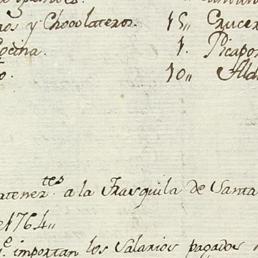 os y Chocolateros. 15,, Crucer
ocina. 1. Picapor
o. 10,, Ald
atener.tes a la Frasquila de Santa
e 1764,,
q.e importan los Salarios pagados